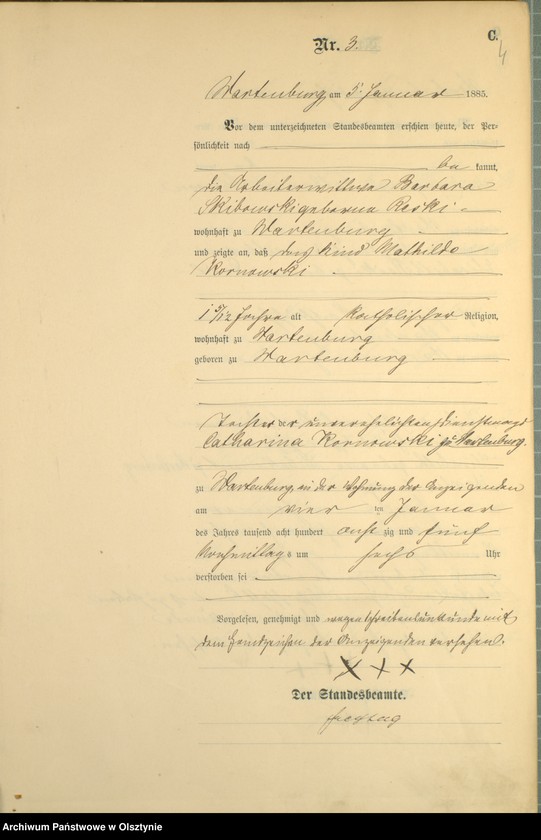 C.
4
Nr. 3.
Wartenburg, am 5. Januar 1885.
Vor dem unterzeichneten Standesbeamten erschien heute, der Per-
sönlichkeit nach
be kannt,
die Arbeiterwittwe Barbara
Skibowski geborene Reski
wohnhaft zu Wartenburg
und zeigte an, daß das Kind Mathilde
Kornowski
1 5/12 Jahre alt katholischer Religion,
wohnhaft zu Wartenburg
geboren zu Wartenburg
Tochter der unverehelichten Dienstmagd
Catharina Kornowski zu Wartenburg
zu Wartenburg, in der Wohnung der Anzeigenden
am vier ten Januar
des Jahres tausend acht hundert acht zig und fünf
Vormittags um sechs Uhr
verstorben sei
Vorgelesen, genehmigt und wegen Schreibensunkunde mit
dem Handzeichen der Anzeigenden versehen.
X X X
Der Standesbeamte.
Archiwum Państwowe w Olsztynie